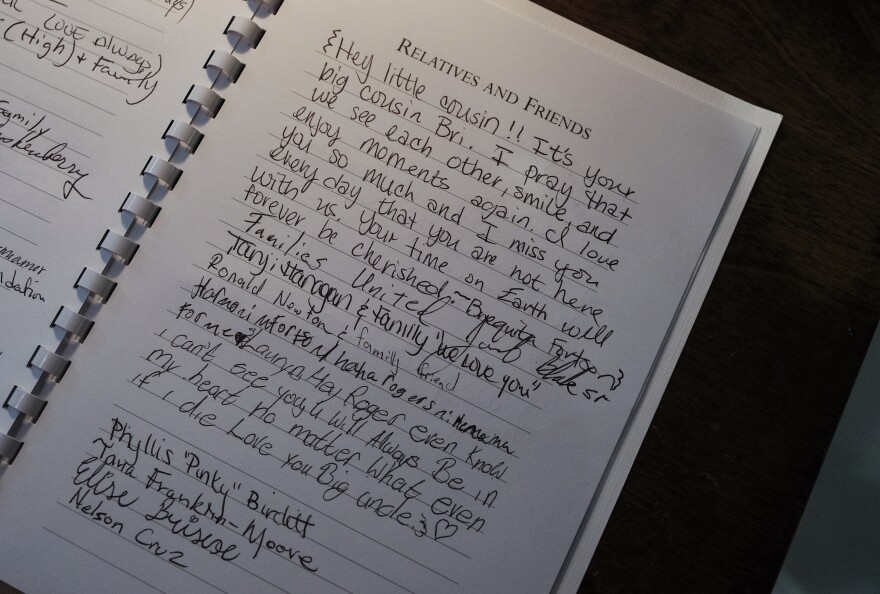 Love Always)
(High) + Family
Family
RELATIVES AND FRIENDS
{Hey little cousin!! It's your
big cousin Bri. I pray that
we see each other, smile, and
enjoy moments again. I love
you so much and I miss you
every day that you are not here
with us. Your time on Earth will
forever be cherished. ~Brequita Fortson}
Families United
Tanji Hanagan & family "We Love you"
Ronald Newton, family friend
Harmoni
Lauryn Hey Roger even know
i can't see you u will Always Be in
my heart no matter what even
if i die Love you Big uncle. :) ♡
Phyllis "Punky" Birditt
Tana Franklin-Moore
Elise
Nelson Cruz